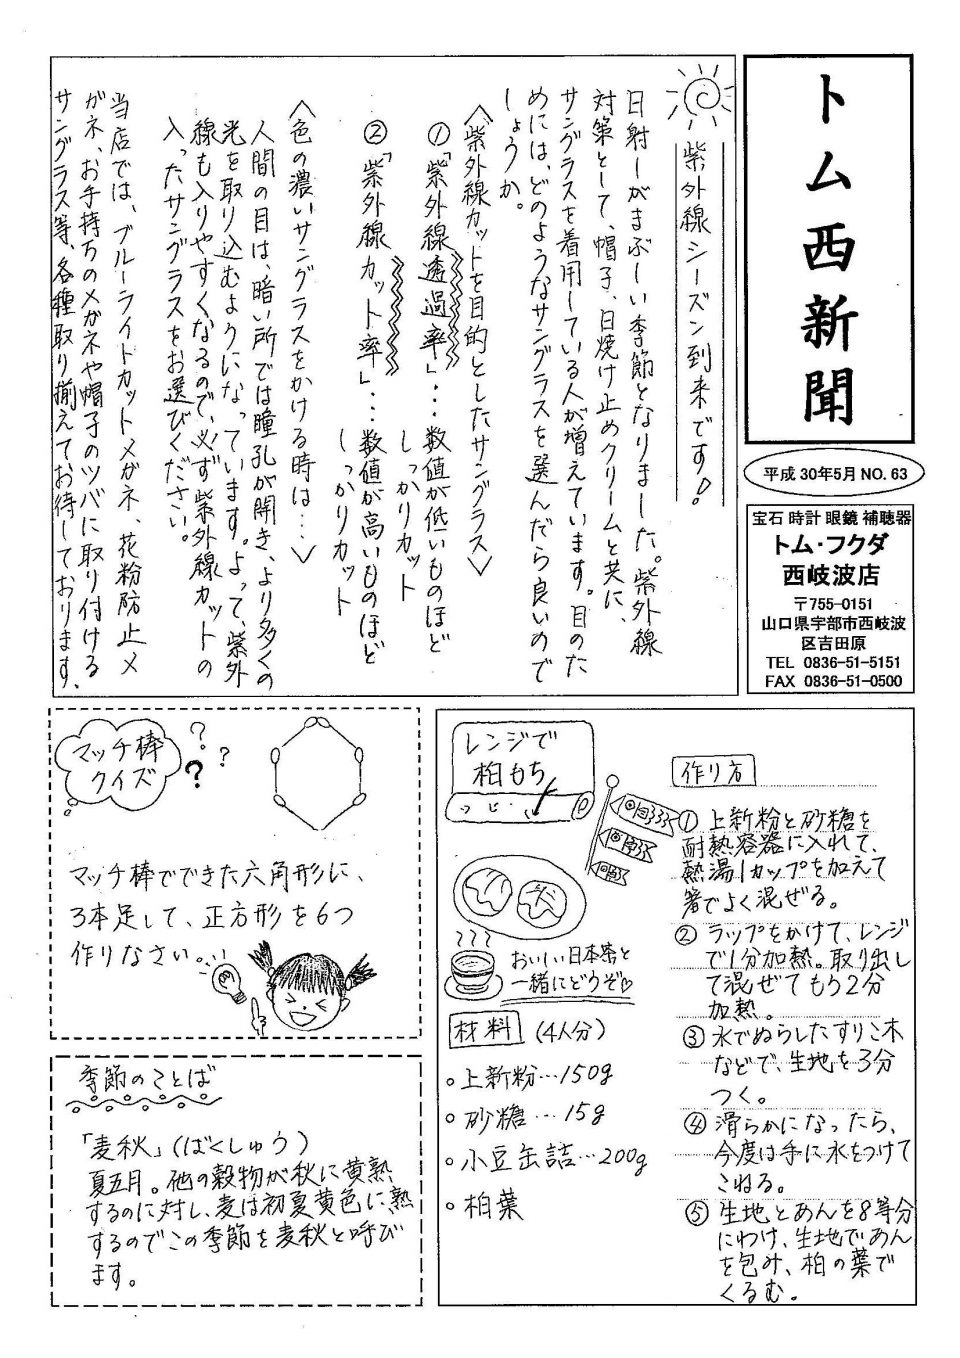 トム西新聞
平成30年5月 NO. 63
宝石 時計 眼鏡 補聴器
トム・フクダ
西岐波店
〒755-0151
山口県宇部市西岐波
区吉田原
TEL 0836-51-5151
FAX 0836-51-0500
紫外線シーズン到来です!
日射しがまぶしい季節となりました。紫外線
対策として、帽子、日焼け止めクリームと共に、
サングラスを着用している人が増えています。目のた
めには、どのようなサングラスを選んだら良いので
しょうか。
〈紫外線カットを目的としたサングラス〉
①「紫外線透過率」・・・数値が低いものほど
しっかりカット
②「紫外線カット率」・・・数値が高いものほど
しっかりカット
〈色の濃いサングラスをかける時は…〉
人間の目は、暗い所では瞳孔が開き、より多くの
光を取り込むようになっています。よって、紫外
線も入りやすくなるので、必ず紫外線カットの
入ったサングラスをお選びください。
当店では、ブルーライトカットメガネ、花粉防止メ
ガネ、お手持ちのメガネや帽子のツバに取り付ける
サングラス等、各種取り揃えてお待ちしております。
マッチ棒
クイズ
???
マッチ棒でできた六角形に、
3本足して、正方形を6つ
作りなさい。
季節のことば
「麦秋」(ばくしゅう)
夏五月。他の穀物が秋に黄熟
するのに対し、麦は初夏黄色に熟
するのでこの季節を麦秋と呼び
ます。
レンジで
柏もち
おいしい日本茶と
一緒にどうぞ♡
材料 (4人分)
○上新粉…150g
○砂糖…15g
○小豆缶詰…200g
○柏葉
作り方
① 上新粉と砂糖を
耐熱容器に入れて、
熱湯1カップを加えて
箸でよく混ぜる。
② ラップをかけて、レンジ
で1分加熱。取り出し
て混ぜてもう2分
加熱。
③ 水でぬらしたすりこ木
などで、生地を3分
つく。
④ 滑らかになったら、
今度は手に水をつけて
こねる。
⑤ 生地とあんを8等分
にわけ、生地であん
を包み、柏の葉で
くるむ。